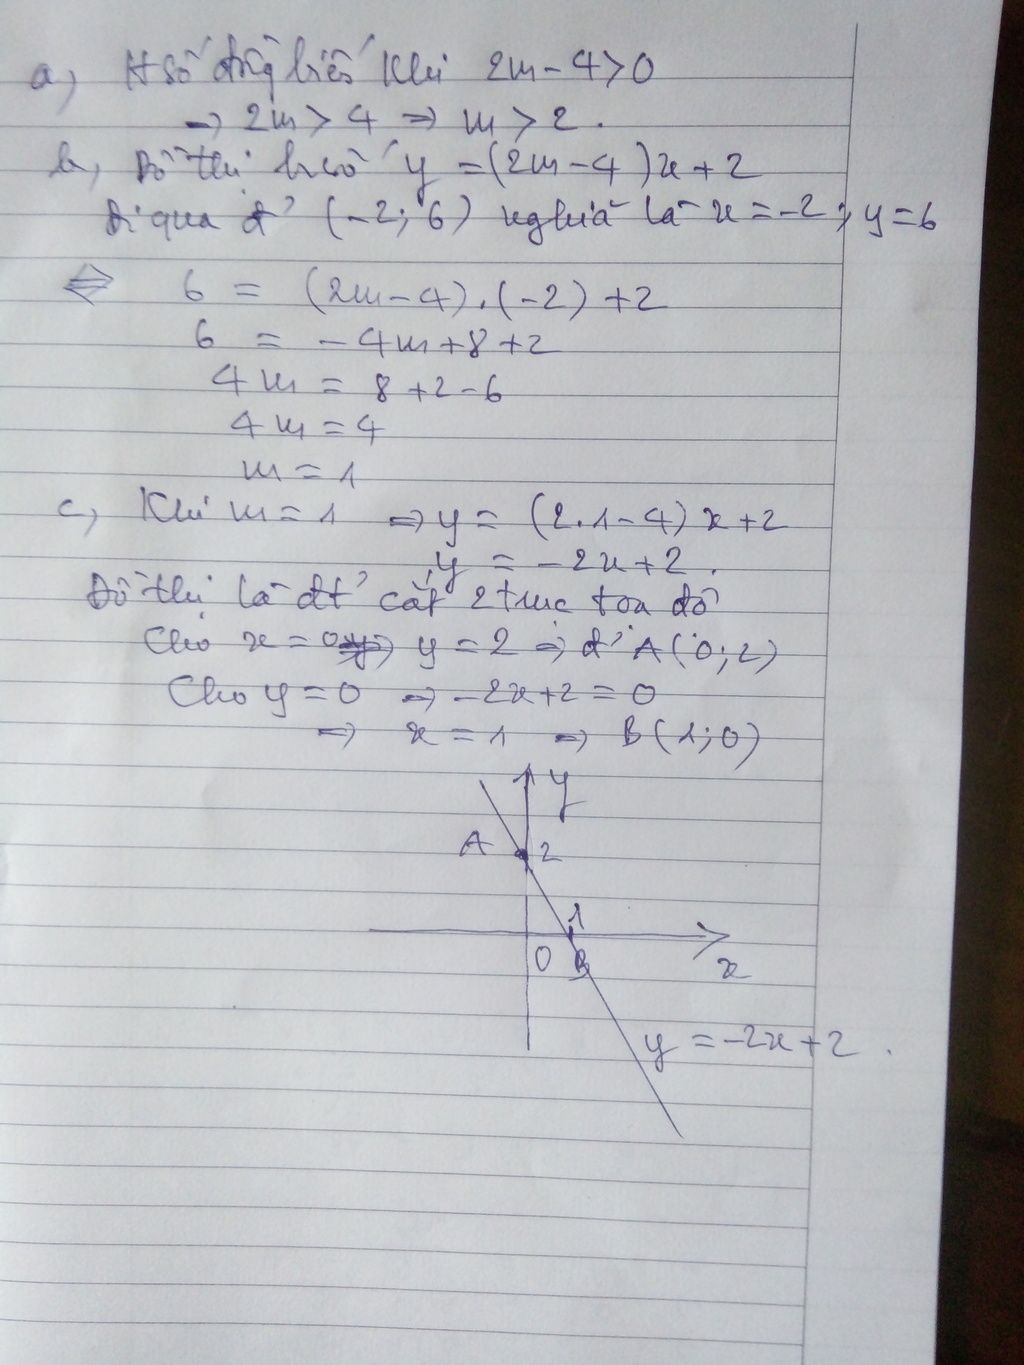 a, H số đồng biến khi 2m-4>0
⇒ 2m > 4 ⇒ m > 2.
b, Đồ thị h số y = (2m-4)x+2
Đi qua đ' (-2; 6) nghĩa là x = -2; y = 6
⇔ 6 = (2m-4).(-2)+2
6 = -4m+8+2
4m = 8+2-6
4m = 4
m = 1
c, Khi m = 1 ⇒ y = (2.1-4)x+2
y = -2x+2.
Đồ thị là đt' cắt 2 trục toạ độ
Cho x = 0 ⇒ y = 2 ⇒ đ' A(0;2)
Cho y = 0 ⇒ -2x+2 = 0
⇒ x = 1 ⇒ B(1;0)
y
A 2
1
O B x
y = -2x+2.